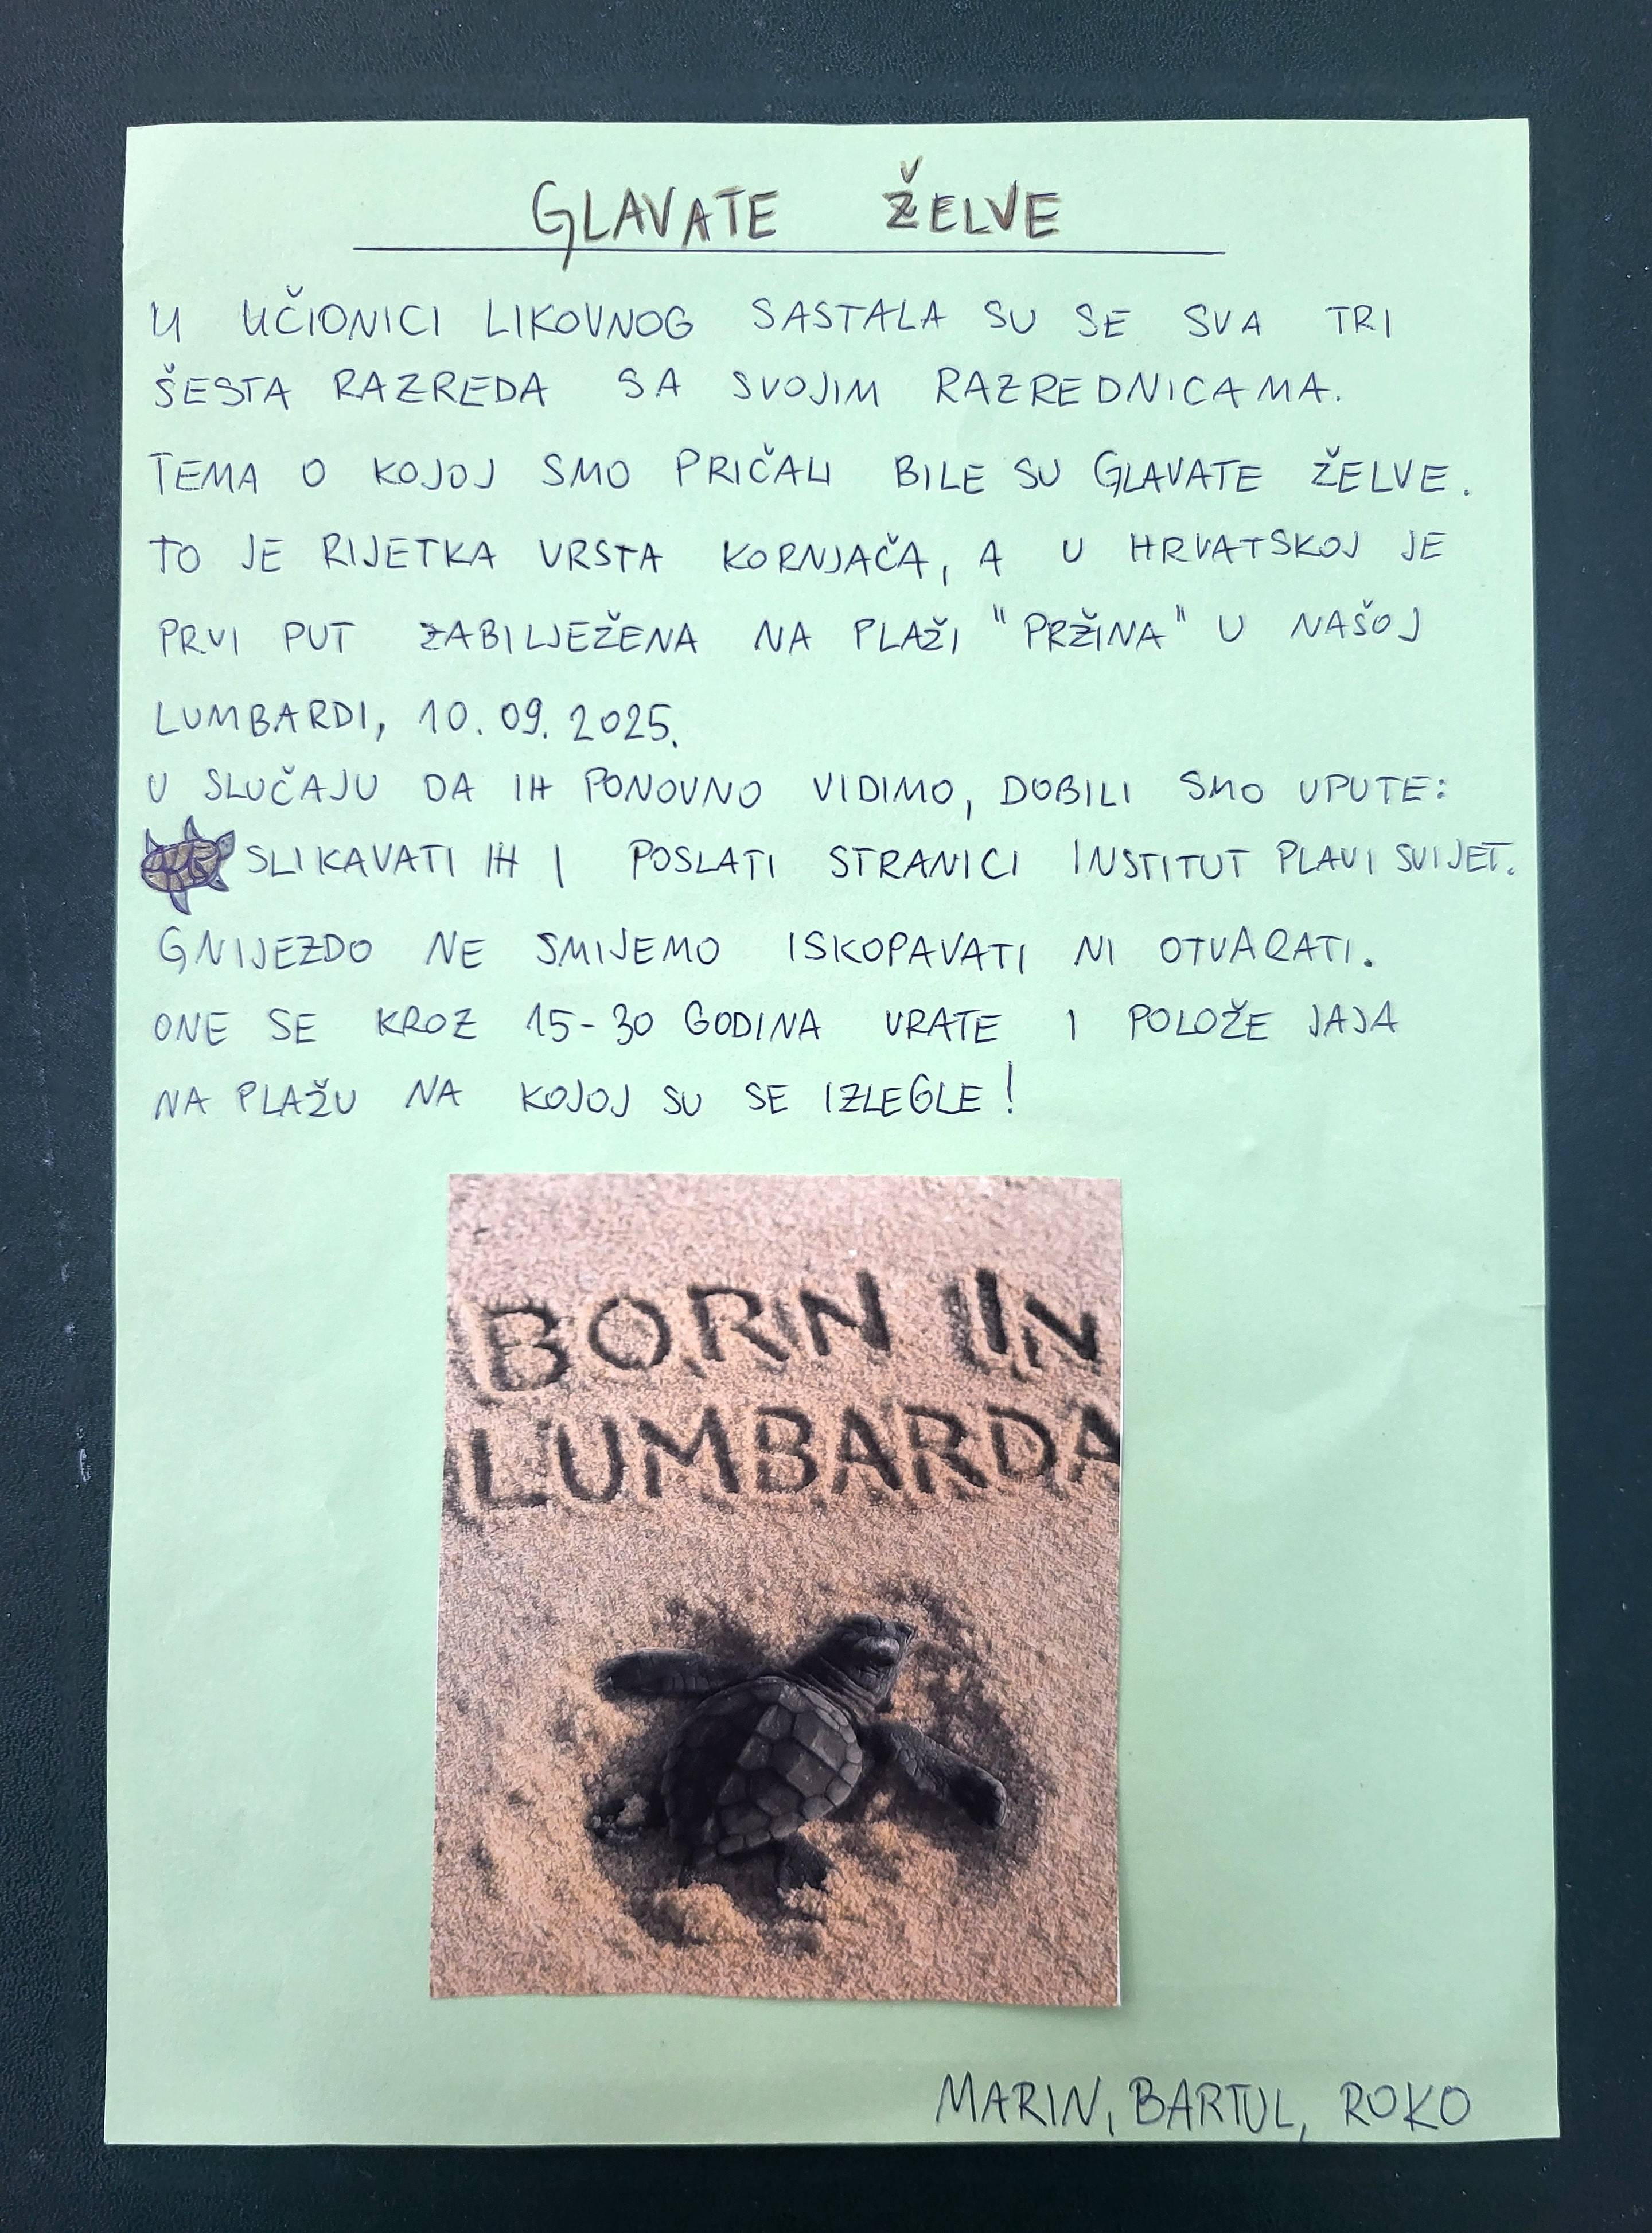 GLAVATE ŽELVE
U UČIONICI LIKOVNOG SASTALA SU SE SVA TRI
ŠESTA RAZREDA SA SVOJIM RAZREDNICAMA.
TEMA O KOJOJ SMO PRIČALI BILE SU GLAVATE ŽELVE.
TO JE RIJETKA VRSTA KORNJAČA, A U HRVATSKOJ JE
PRVI PUT ZABILJEŽENA NA PLAŽI "PRŽINA" U NAŠOJ
LUMBARDI, 10.09.2025.
U SLUČAJU DA IH PONOVNO VIDIMO, DOBILI SMO UPUTE:
SLIKAVATI IH I POSLATI STRANICI INSTITUT PLAVI SVIJET.
GNIJEZDO NE SMIJEMO ISKOPAVATI NI OTVARATI.
ONE SE KROZ 15-30 GODINA VRATE I POLOŽE JAJA
NA PLAŽU NA KOJOJ SU SE IZLEGLE!
BORN IN
LUMBARDA
MARIN, BARTUL, ROKO